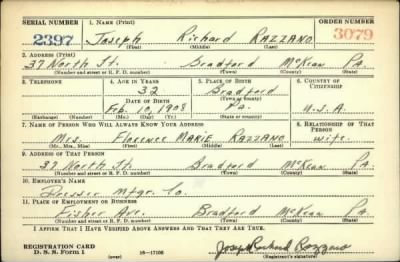 SERIAL NUMBER 1. NAME (Print) ORDER NUMBER
2397 Joseph Richard RAZZANO 3079
(First) (Middle) (Last)
2. ADDRESS (Print)
37 North St. Bradford McKean Pa.
(Number and street or R. F. D. number) (Town) (County) (State)
3. TELEPHONE 4. AGE IN YEARS 5. PLACE OF BIRTH 6. COUNTRY OF CITIZENSHIP
32 Bradford
DATE OF BIRTH (Town or county)
Feb. 10, 1908 Pa. U.S.A.
(Exchange) (Number) (Mo.) (Day) (Yr.) (State or country)
7. NAME OF PERSON WHO WILL ALWAYS KNOW YOUR ADDRESS 8. RELATIONSHIP OF THAT PERSON
Mrs. Florence MARIE RAZZANO wife.
(Mr., Mrs., Miss) (First) (Middle) (Last)
9. ADDRESS OF THAT PERSON
37 North St. Bradford McKean Pa.
(Number and street or R. F. D. number) (Town) (County) (State)
10. EMPLOYER'S NAME
Dresser Mfgr. Co.
11. PLACE OF EMPLOYMENT OR BUSINESS
Fisher Ave. Bradford McKean Pa.
(Number and street or R. F. D. number) (Town) (County) (State)
I AFFIRM THAT I HAVE VERIFIED ABOVE ANSWERS AND THAT THEY ARE TRUE.
REGISTRATION CARD
D. S. S. FORM 1 (over) 16—17105 Joseph Richard Razzano
(Registrant's signature)